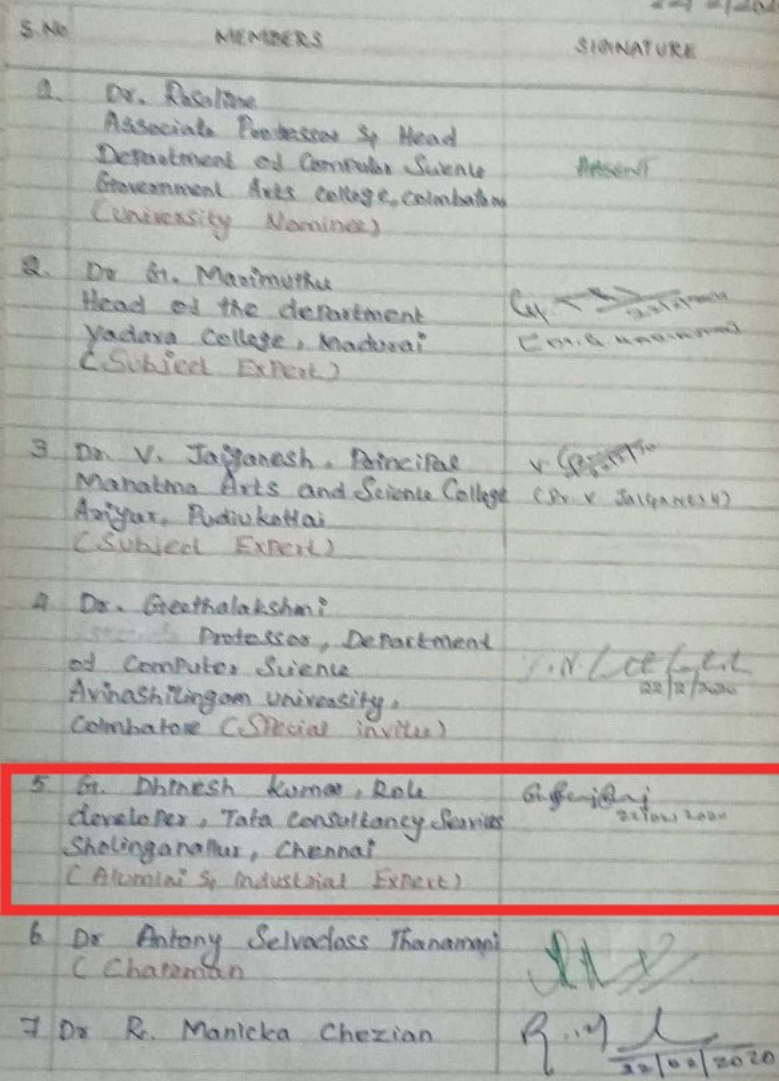 22/2/202
S.No MEMBERS SIGNATURE
1. Dr. Rosaline
Associate Professor & Head
Department of Computer Science Absent
Government Arts College, Coimbatore
(University Nominee)
2. Dr G. Marimuthu
Head of the department
Yadava College, Madurai
(Subject Expert)
3 Dr. V. Jaiganesh, Principal
Mahatma Arts and Science College (Dr. V JAIGANESH)
Ariyur, Pudukottai
(Subject Expert)
4 Dr. Geethalakshmi
Professor, Department
of Computer Science
Avinashilingam University, 22/2/2020
Coimbatore (Special invitee)
5 G. Dhinesh Kumar, Role
developer, Tata Consultancy Services 22/02/2020
Sholinganallur, Chennai
(Alumini & Industrial Expert)
6 Dr Antony Selvadoss Thanamani
(Chairman
7 Dr R. Manicka Chezian
22/02/2020